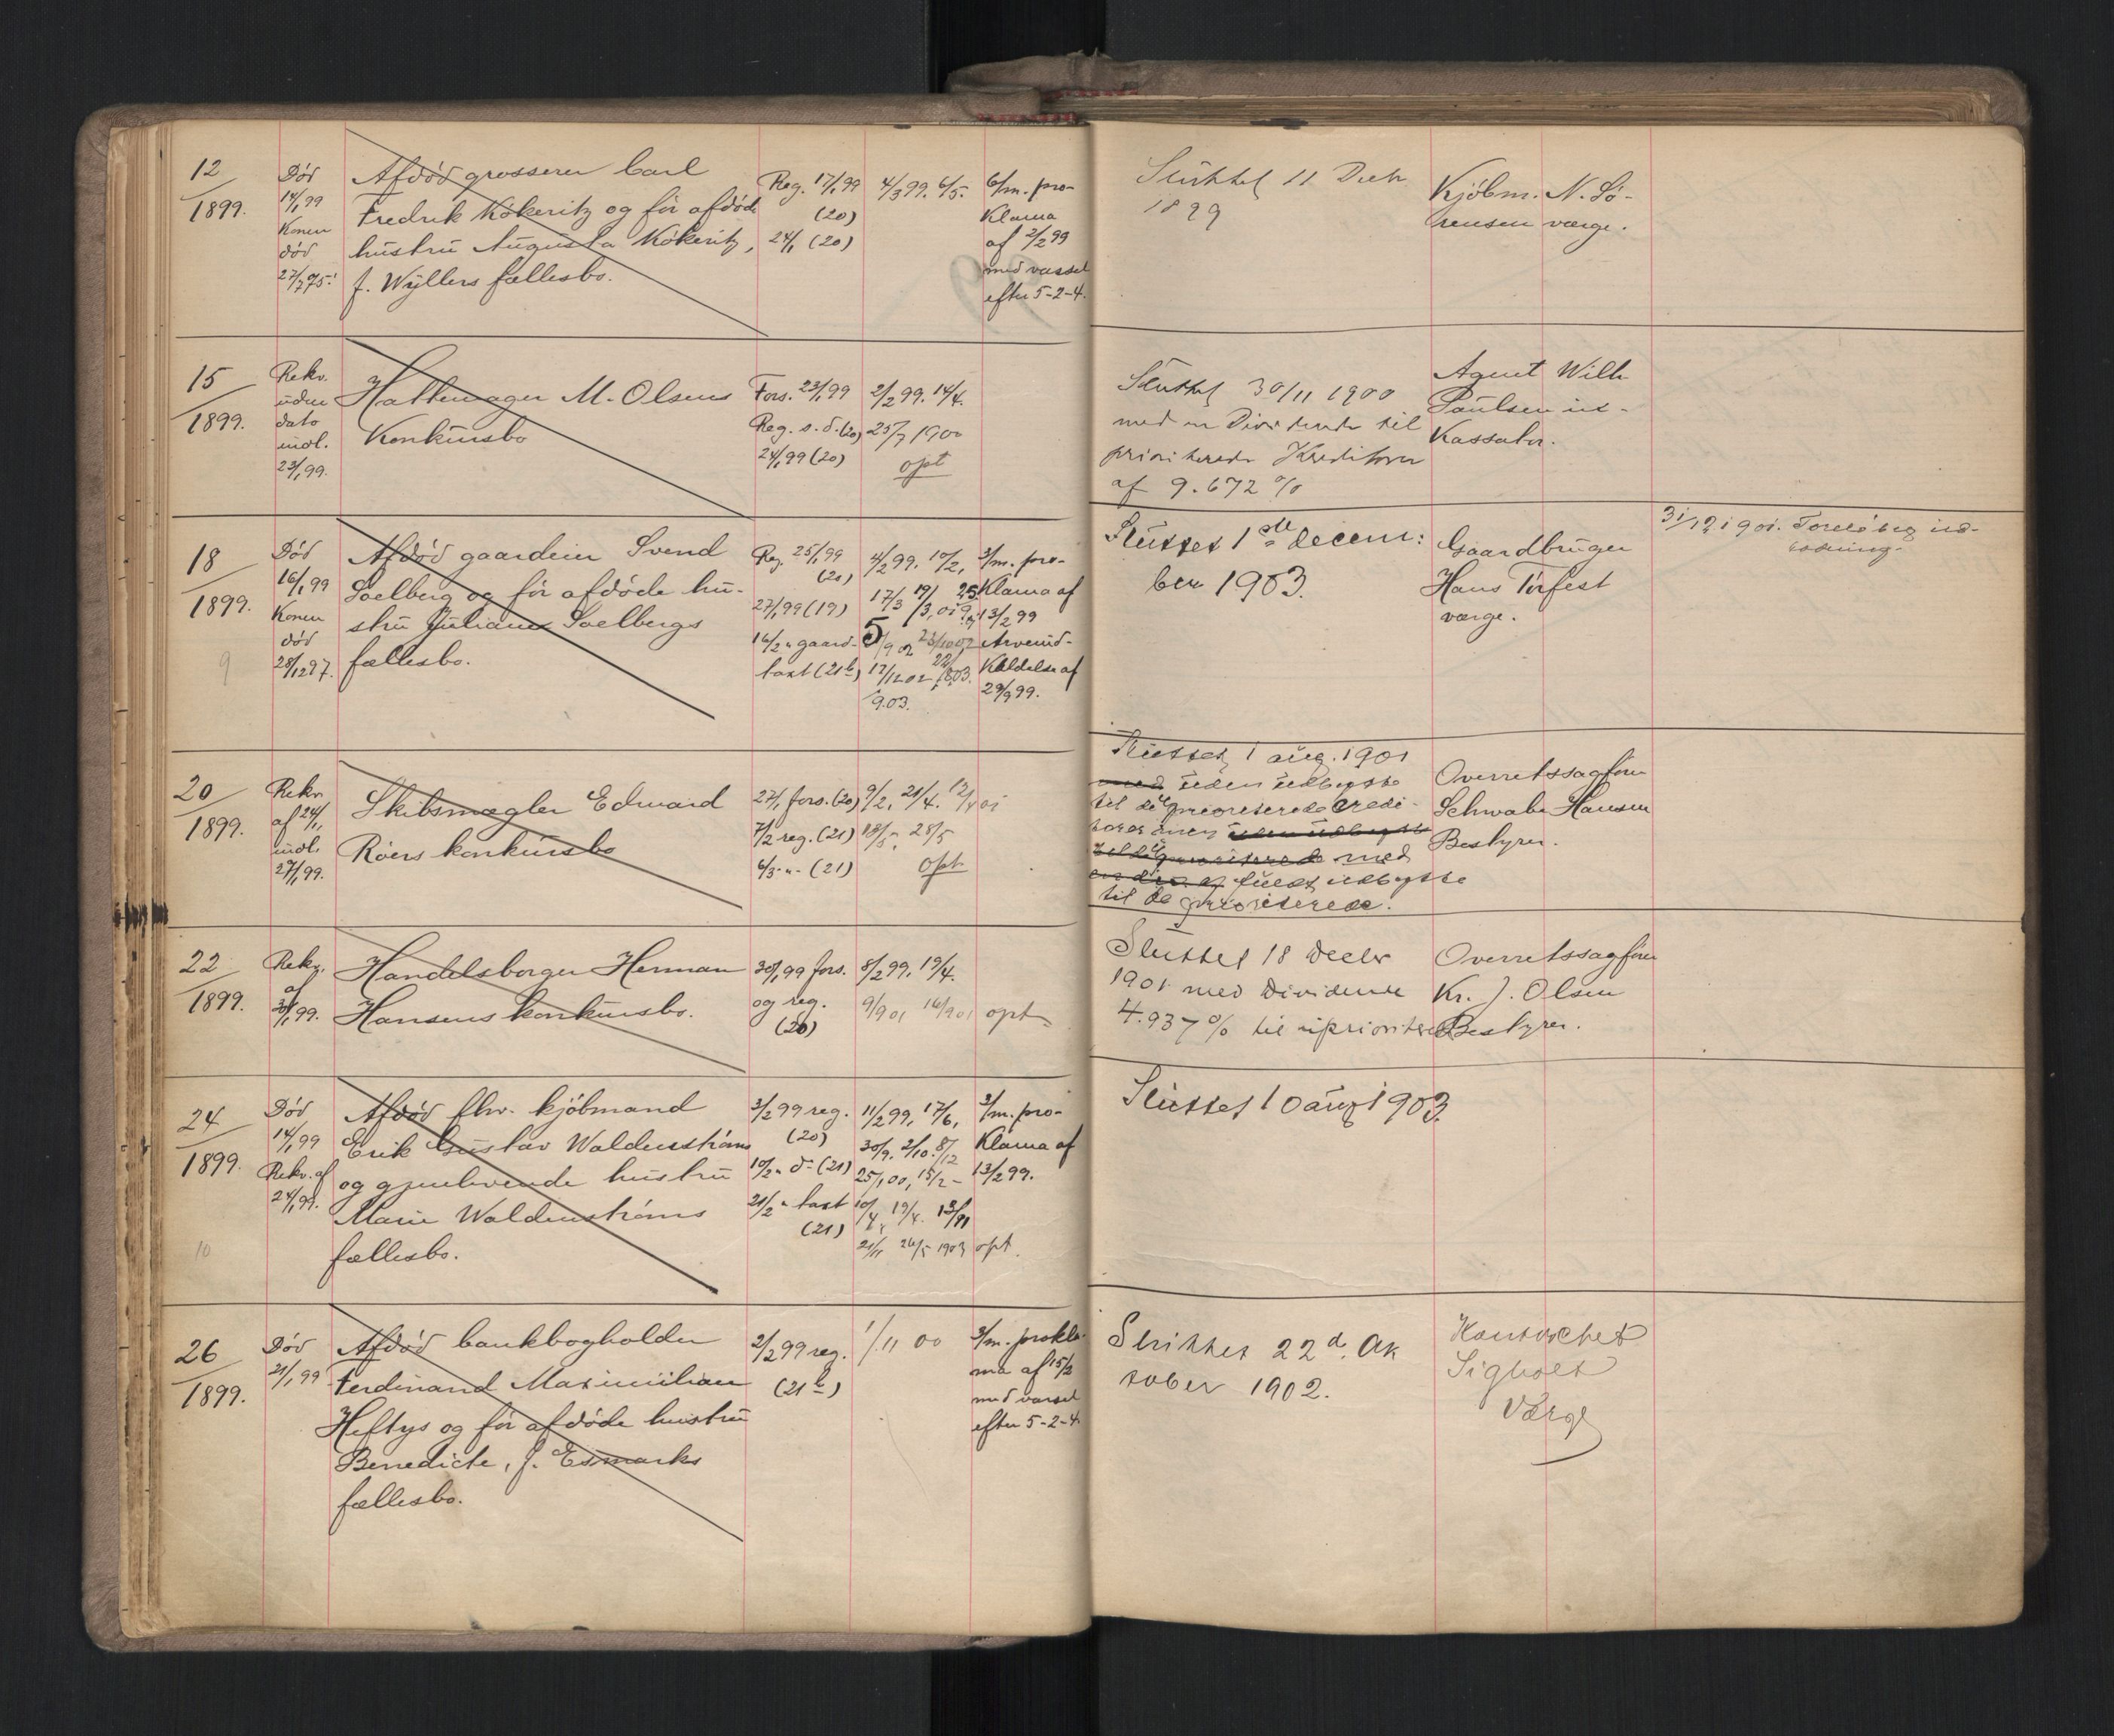 12
1899.
Död
14/1 99
Konen
död
27/7 75.
Afdöd grosserer Carl
Fredrik Kökeritz og för afdöde
hustru Augusta Kökeritz,
f. Wyllers fællesbo.
Reg. 17/1 99
(20)
24/1 (20)
4/3 99. 6/5.
6/m. pro-
klama
af 2/2 99
med varsel
efter 5-2-4.
Sluttet 11 Decbr
1899
Kjöbm. N. Sö-
rensen værge.
15
1899.
Rekv.
uden
dato
indl.
23/1 99.
Hattemager M. Olsens
Konkursbo
Fors. 23/1 99
Reg. s. d. (20)
24/1 99 (20)
2/2 99. 14/4.
25/7 1900
opt
Sluttet 30/11 1900
med en Dividende til
prioriterede Kreditorer
af 9.672 %
Agent Wilh
Paulsen in-
kassator.
18
1899.
9
Död
16/1 99
Konen
död
28/12 97.
Afdöd gaardeier Svend
Soelberg og för afdöde hu-
stru Juliane Soelbergs
fællesbo.
Reg. 25/1 99
(20)
27/1 99 (19)
16/2 " gaard-
taxt (21 b)
4/2 99. 10/2,
17/3
17/12 02
9.03.
3/m. pro-
klama af
13/2 99
Arveind-
kaldelse af
29/9 99.
Sluttet 1ste decem:
ber 1903.
Gaardbruger
Hans Törfest
værge.
31/12 1901. Foreløbig ud-
lodning.
20
1899.
Rekv.
af 24/1,
indl.
27/1 99.
Skibsmægler Edward
Röers konkursbo
27/1 fors. (20)
7/2 reg. (21)
6/3 - " - (21)
9/2, 21/4. 12/4 01
13/5 " 28/5
opt
Sluttet 1 aug. 1901
med uden udbytte
til de uprioriterede Credi-
torer men uden udbytte
til de uprioriterede med
en div. af fuldt udbytte
til de prioriterede.
Overretssagförer
Schwabe Hansen
Bestyrer.
22
1899.
Rekv.
af
30/1 99.
Handelsborger Herman
Hansens konkursbo.
30/1 99 fors.
og reg.
(20)
8/2 99, 19/4.
9/9 01 16/9 01
opt
Sluttet 18 Decbr
1901 med Dividende
4.937 % til uprioriterede
Overretssagförer
Kr. J. Olsen
Bestyrer.
24
1899.
10
Död
14/1 99
Rekv. af
24/1 99.
Afdöd fhv. kjöbmand
Erik Gustav Waldenströms
og gjenlevende hustru
Marie Waldenströms
fællesbo.
3/2 99 reg.
(20)
10/2 " d- (21)
21/2 " taxt
(21)
11/2 99, 17/6,
30/9. 2/10. 8/12
25/1 00, 15/2 -
10/4, 19/4.
21/11 26/5 1903
3/m. pro-
klama af
13/2 99.
opt.
Sluttet 10 aug 1903.
26
1899.
Död
21/1 99
Afdöd bankbogholder
Ferdinand Maximilian
Heftys og för afdöde hustru
Benedicte, f. Esmarks
fællesbo.
2/2 99 reg.
(21 b)
1/11 00
3/m. prokla-
ma af 15/2
med varsel
efter 5-2-4.
Sluttet 22d. Ok
tober 1902.
Sigholt
Værge